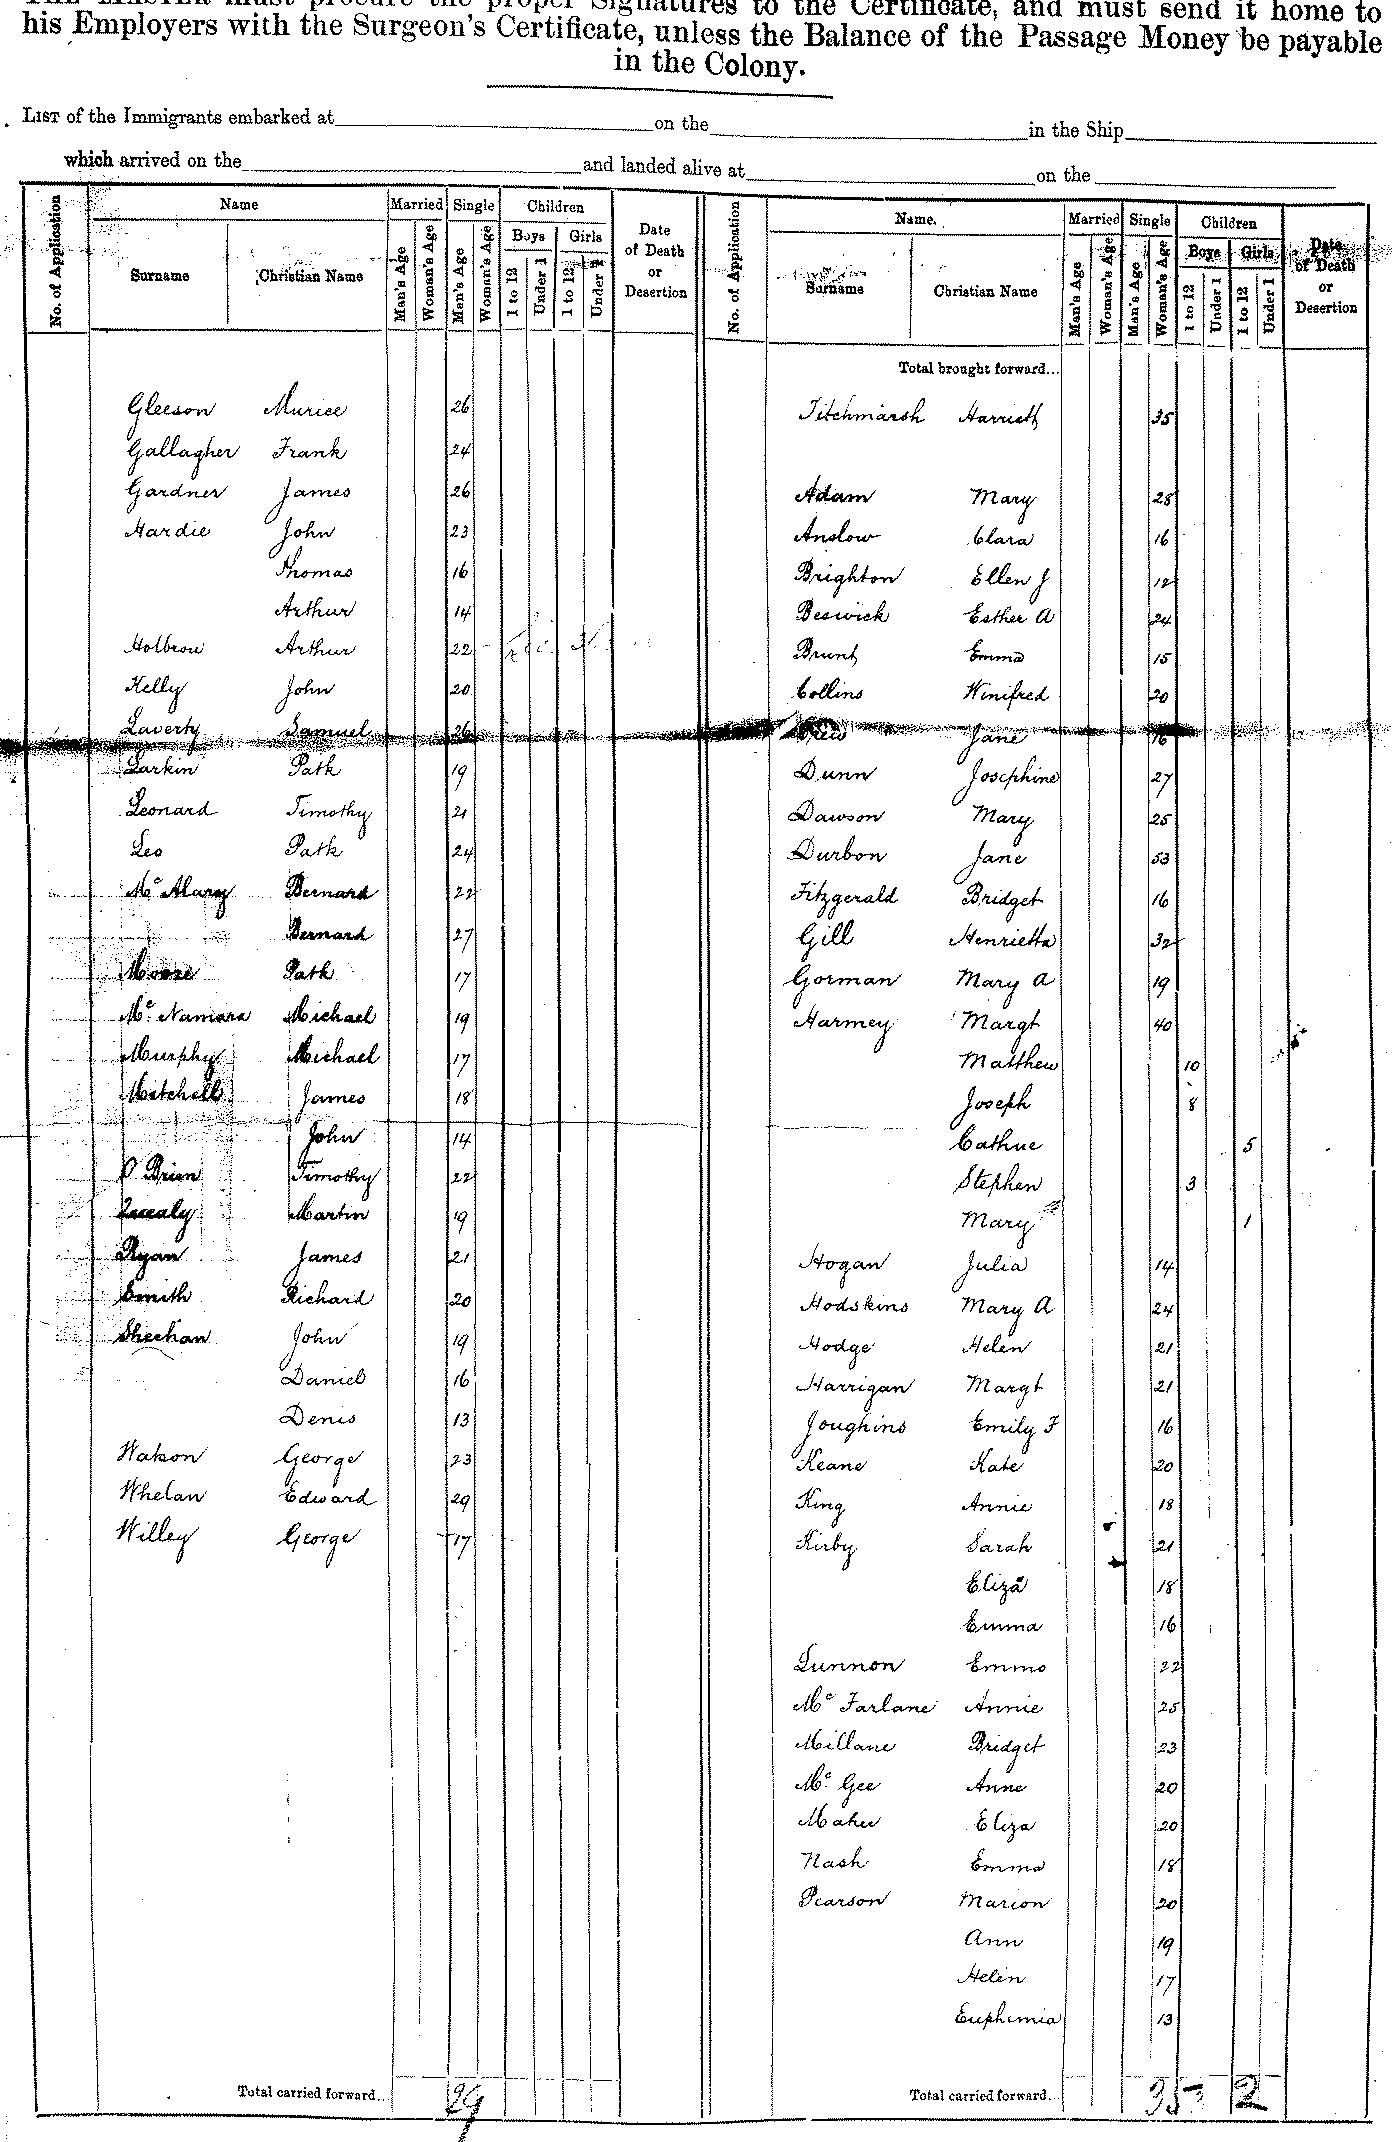 THE MASTER must procure the proper Signatures to the Certificate, and must send it home to
his Employers with the Surgeon's Certificate, unless the Balance of the Passage Money be payable
in the Colony.
LIST of the Immigrants embarked at on the in the Ship
which arrived on the and landed alive at on the
No. of Application
Name
Surname
Christian Name
Married
Man's Age
Woman's Age
Single
Man's Age
Woman's Age
Children
Boys
1 to 12
Under 1
Girls
1 to 12
Under 1
Date
of Death
or
Desertion
Gleeson Murice 26
Gallagher Frank 24
Gardner James 26
Hardie John 23
Thomas 16
Arthur 14
Holbrow Arthur 22
Kelly John 20
Laverty Samuel 26
Larkin Patk 19
Leonard Timothy 21
Leo Patk 24
Mc Alary Bernard 22
Bernard 27
Moore Patk 17
Mc Namara Michael 19
Murphy Michael 17
Mitchell James 18
John 14
O Brien Timothy 22
Quealy Martin 19
Ryan James 21
Smith Richard 20
Sheehan John 19
Daniel 16
Denis 13
Watson George 23
Whelan Edward 29
Willey George 17
Total carried forward... 29
No. of Application
Name.
Surname
Christian Name
Married
Man's Age
Woman's Age
Single
Man's Age
Woman's Age
Children
Boys
1 to 12
Under 1
Girls
1 to 12
Under 1
Date
of Death
or
Desertion
Total brought forward...
Titchmarsh Harriett 35
Adam Mary 28
Anslow Clara 16
Brighton Ellen J 12
Beswick Esther A 24
Brunt Emma 15
Collins Winifred 20
Jane 16
Dunn Josephine 27
Dawson Mary 25
Durbon Jane 53
Fitzgerald Bridget 16
Gill Henrietta 32
Gorman Mary A 19
Harmey Margt 40
Matthew 10
Joseph 8
Cathne 5
Stephen 3
Mary 1
Hogan Julia 14
Hodskins Mary A 24
Hodge Helen 21
Harrigan Margt 21
Joughins Emily F 16
Keane Kate 20
King Annie 18
Kirby Sarah 21
Eliza 18
Emma 16
Lunnon Emma 22
Mc Farlane Annie 25
Millane Bridget 23
Mc Gee Anne 20
Maher Eliza 20
Nash Emma 18
Pearson Marion 20
Ann 19
Helen 17
Euphemia 13
Total carried forward... 35 2